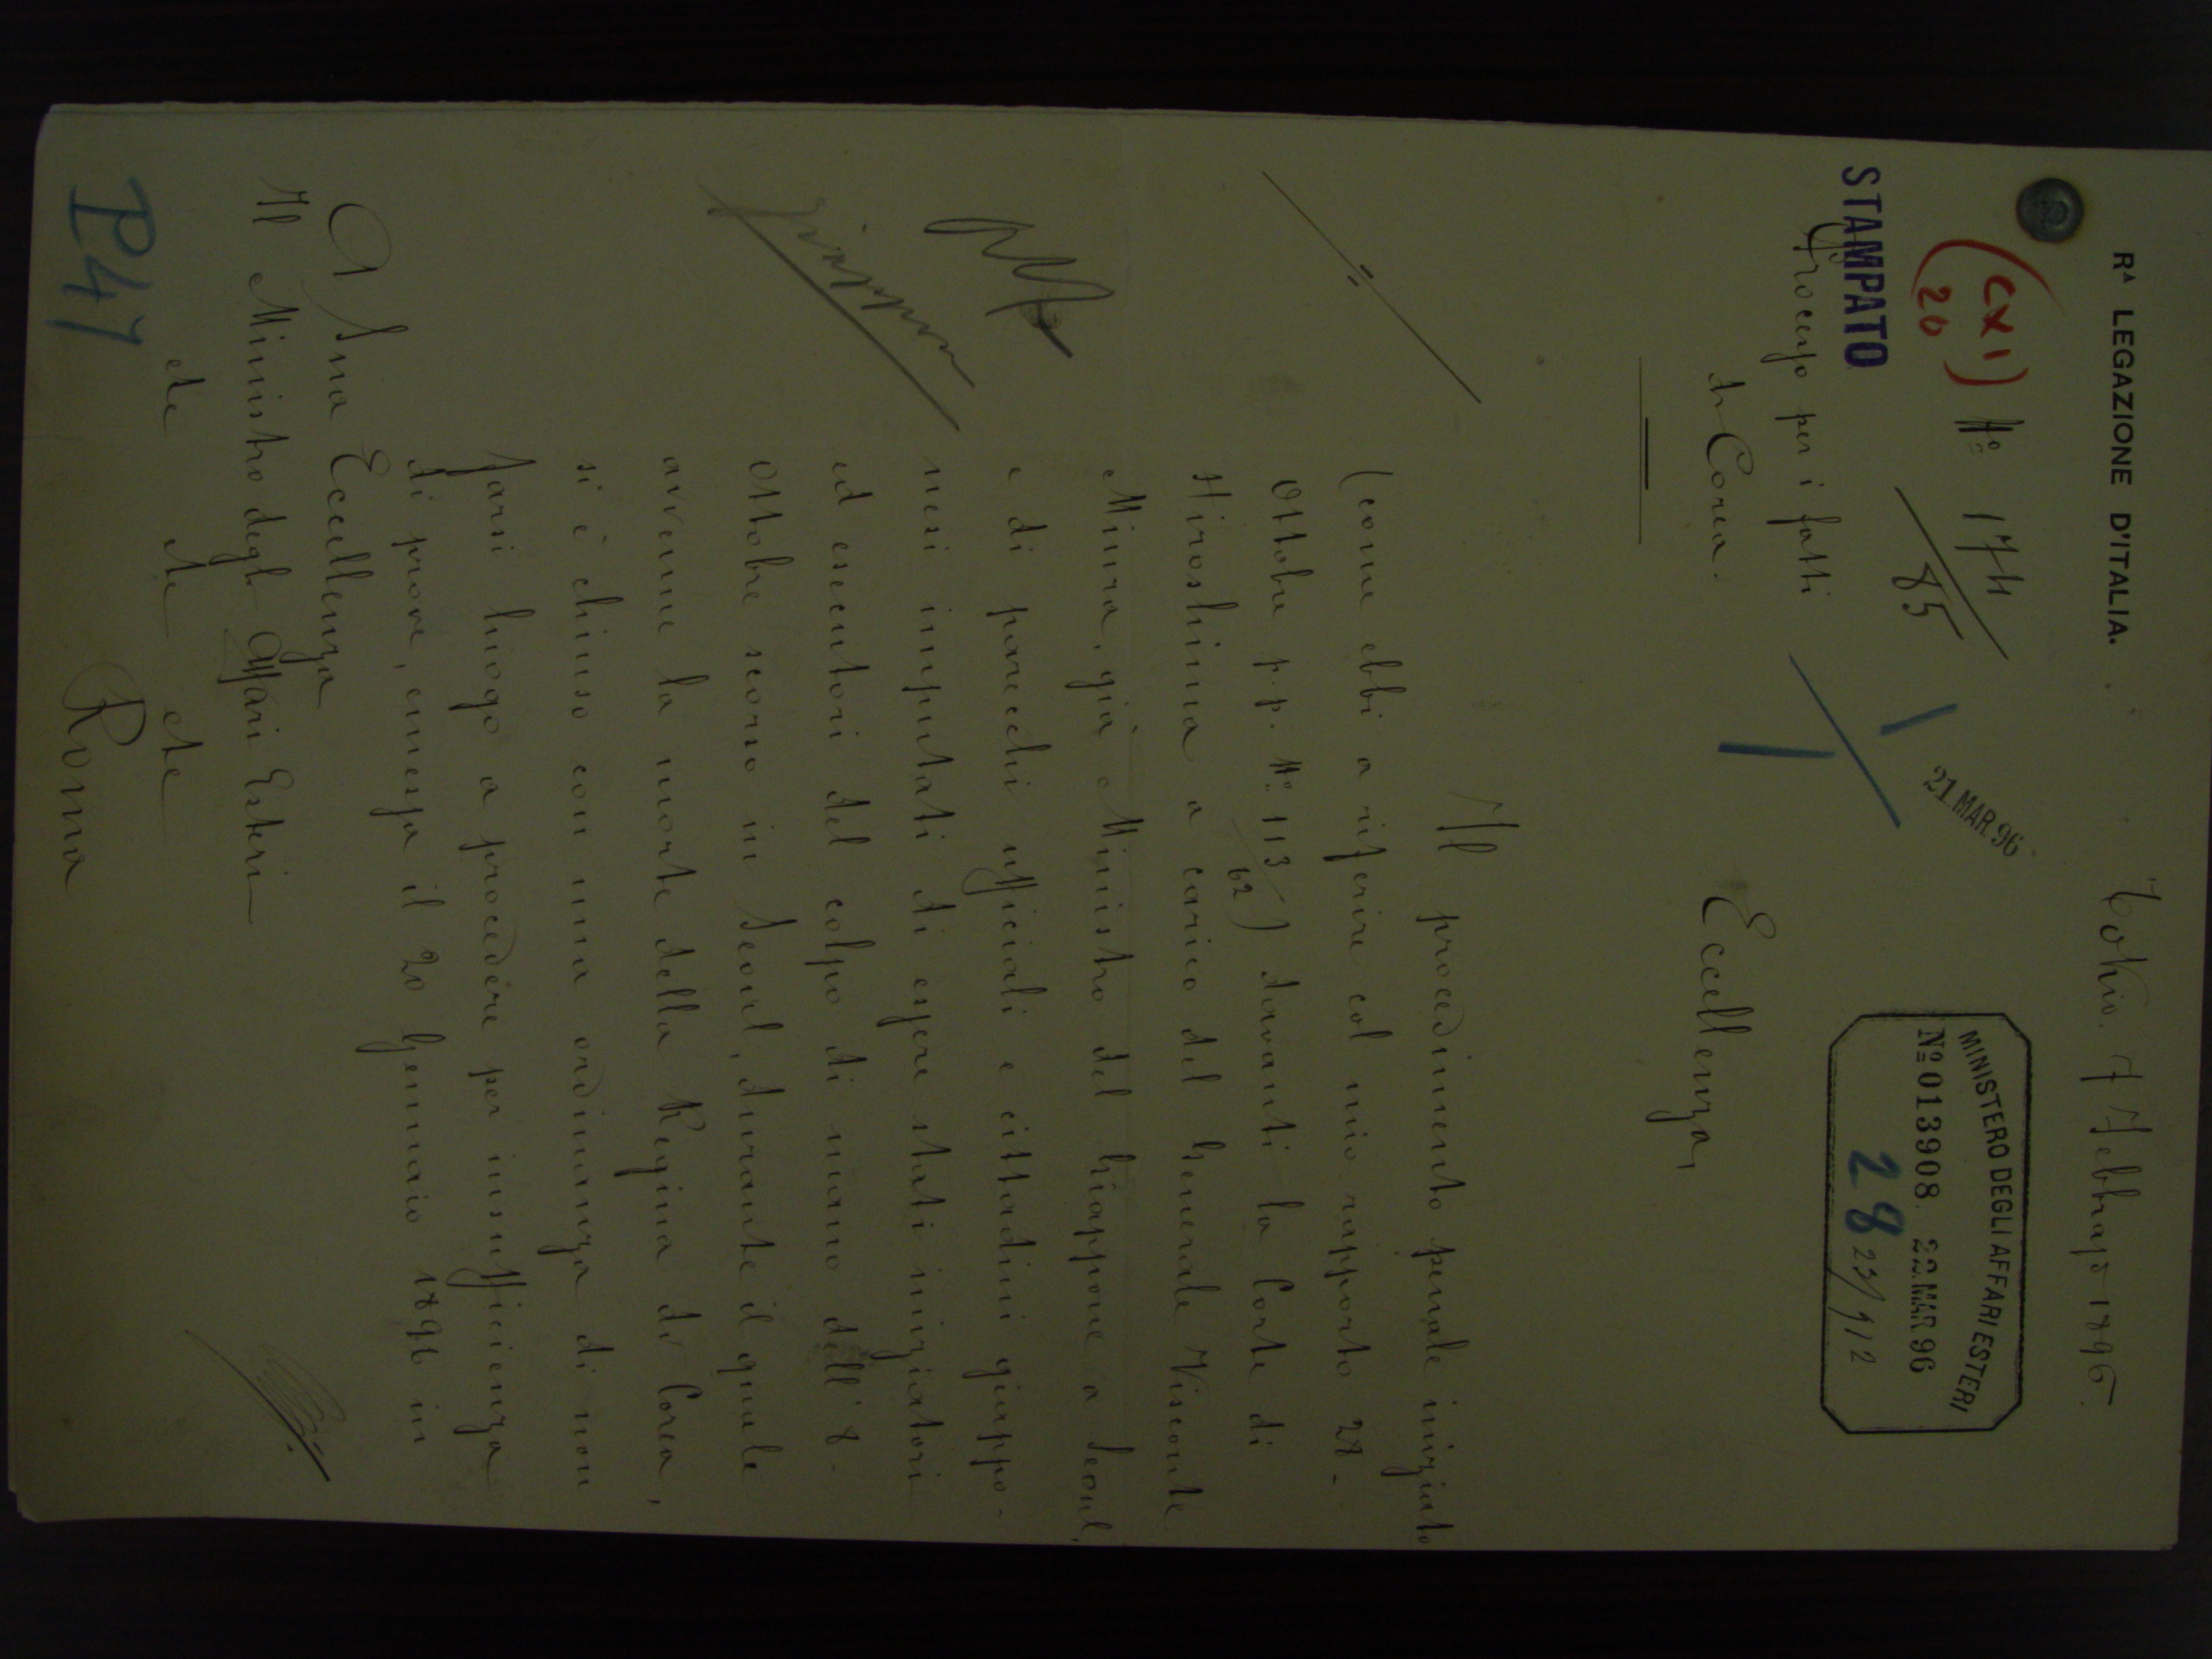 Rᴬ LEGAZIONE D'ITALIA.
Tokio. 7 Febbrajo 1896.
(CXI)
20
N.º 174
85
21.MAR.96
MINISTERO DEGLI AFFARI ESTERI
Nº 013908. 22.MAR 96
28 23/912
STAMPATO
Processo per i fatti
di Corea.
Eccellenza,
Il procedimento penale iniziato
(come ebbi a riferire col mio rapporto 28-
Ottobre p.p. N.º 113/62) davanti la Corte di
Hiroshima a carico del Generale Visconte
Miura, già Ministro del Giappone a Seoul,
e di parecchi ufficiali e cittadini giappo-
nesi imputati di essere stati iniziatori
ed esecutori del colpo di mano dell'8-
Ottobre scorso in Seoul, durante il quale
avvenne la morte della Regina di Corea,
si è chiuso con una ordinanza di non
farsi luogo a procedere per insufficienza
di prove, emessa il 20 Gennaio 1896 in
Giappone
A Sua Eccellenza
Il Ministro degli Affari Esteri
etc etc etc
Roma
P47